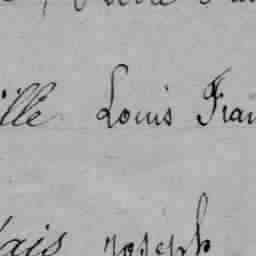 ille Louis Fran
lais Joseph